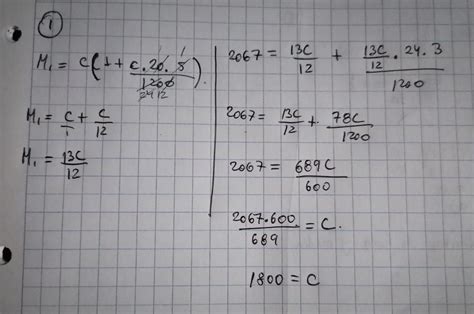 ①
M₁ = C(1 + C.20.5/1200).
2412
M₁ = C/1 + C/12
M₁ = 13C/12
2067 = 13C/12 + (13C/12 . 24.3)/1200
2067 = 13C/12 + 78C/1200
2067 = 689C/600
2067.600/689 = C.
1800 = C